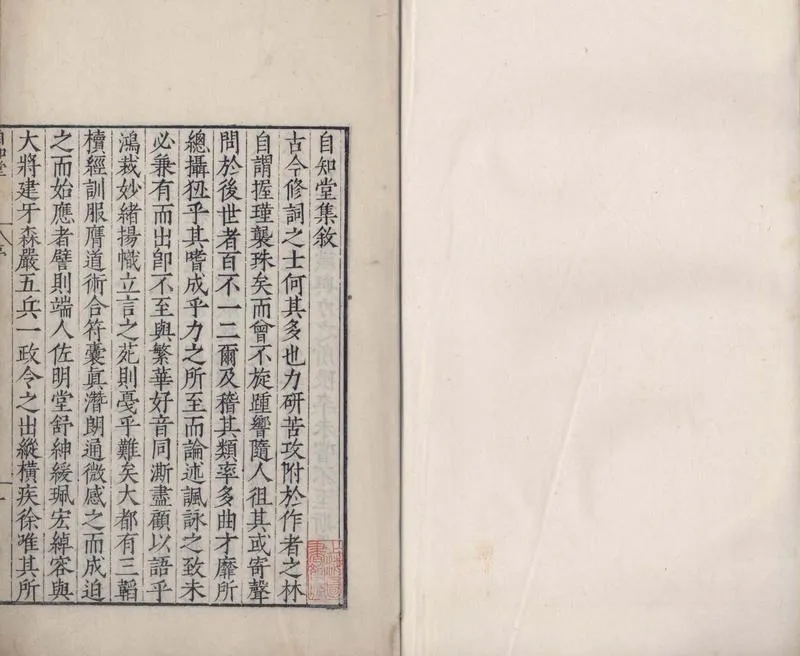 自知堂集敘
古今修詞之士何其多也力研苦攻附於作者之林
自謂握瑾襲珠矣而曾不旋踵響隨人徂其或寄聲
問於後世者百不一二爾及稽其類率多曲才靡所
總攝狃乎其嗜成乎力之所至而論述諷詠之致未
必兼有而出卽不至與繁華好音同澌盡顧以語乎
鴻裁妙緒揚幟立言之苑則戞乎難矣大都有三韜
櫝經訓服膺道術合符囊眞潛朗通微感之而成迫
之而始應者譬則端人佐明堂舒紳緩珮宏綽容與
大將建牙森嚴五兵一政令之出縱橫疾徐唯其所
自知堂
序
一